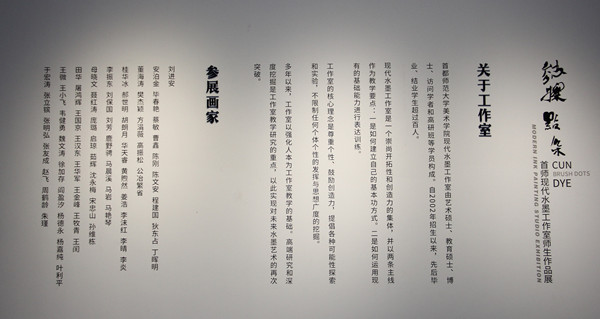 皴擦 點染
CUN
BRUSH DOTS
DYE
首师现代水墨工作室师生作品展
MODERN INK PAINTING STUDIO EXHIBITION
关于工作室
首都师范大学美术学院现代水墨工作室由艺术硕士、教育硕士、博
士、访问学者和高研班等学员构成。自2002年招生以来，先后毕
业、结业学生超过百人。
现代水墨工作室是一个崇尚开拓性和创造力的集体，并以两条主线
作为教学要点：一是如何建立自己的基本功方式。二是如何运用现
有的基础能力进行表达训练。
工作室的核心理念是尊重个性、鼓励创造力，提倡各种可能性探索
和实验，不限制任何个体个性的发挥与思想广度的挖掘。
多年以来，工作室以强化人本为工作室教学的基础。高端研究和深
度挖掘是工作室教学研究的重点，以此实现对未来水墨艺术的再次
突破。
参展画家
刘进安
安泊金 毕春艳 蔡敏 曹鑫 陈刚 陈文安 程建国 狄东占 丁晖明
董海涛 樊杰颖 方滔薇 高振松 公冶繁省
桂华冰 郝世明 胡朗月 华天睿 黄煦然 姜浩 李沫红 李晴 李炎
李振东 刘保国 刘芳 鹿野骋 马晨溪 马岩 马艳琴
母晓文 聂红涛 庞璐 启琼 茹辉 沈永梅 宋忠山 孙维栋
田华 屠鸿辉 王国京 王汉东 王华军 王金峰 王牧青 王闰
王微 王小飞 韦健勇 魏文涛 徐加存 闾盈汐 杨德永 杨嘉纯 叶利平
于宏涛 张立锳 张明弘 张友成 赵飞 周鹤龄 朱瑾